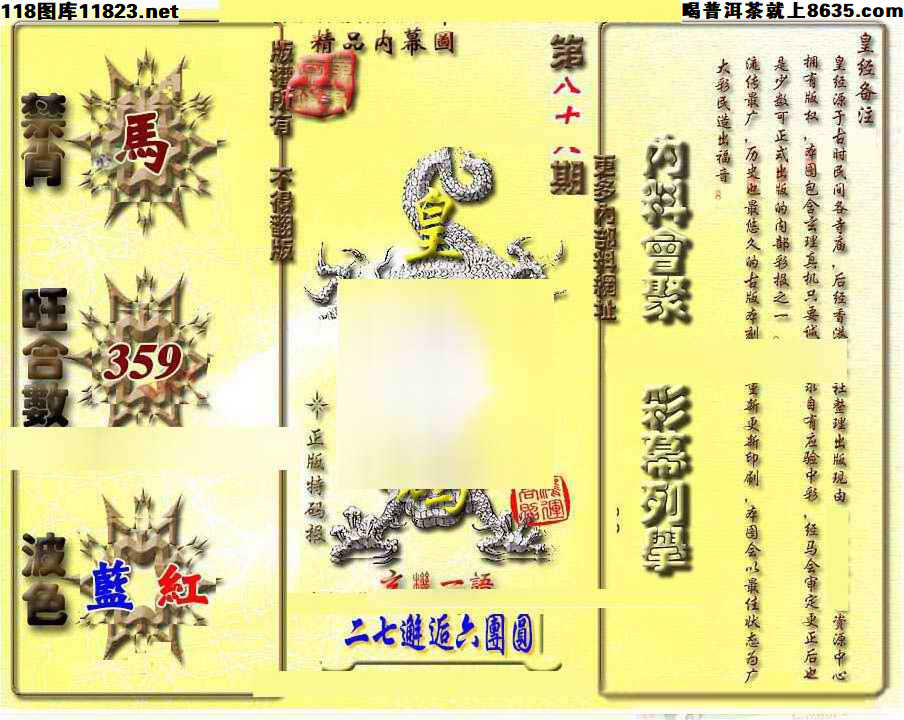 118图库11823.net
喝普洱茶就上8635.com
禁肖
馬
旺合數
359
波色
藍 紅
版權所有 不得翻版
精品内幕圖
第八十八期
更多内部料網址
皇
正版特码报
玄機一語
二七邂逅六團圓
内料會聚
彩幕列舉
皇经备注
皇经源于古时民间各寺庙,后经香港
社整理出版现由
资源中心
拥有版权,本图包含玄理真机只要诚
求自有应验中彩,经马会审定更正后也
是少数可正式出版的内部彩报之一。
流传最广,历史也最悠久的古版本刻
重新更新印刷,本图会以最佳状态为广
大彩民造出福音